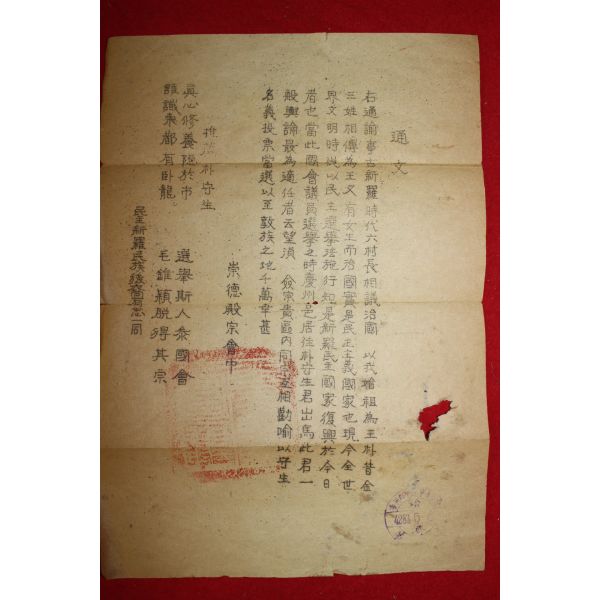 通文
右通諭事古新羅時代六村長相議治國 以我始祖為王朴昔金
三姓相傳為王又有女王而治國實是民主主義國家也現今全世
界文明時代以民主選擧法施行知是新羅民主國家復興於今日
者也當此國會議員選擧之時慶州邑居住朴守生君出馬此君一
般輿論最為適任者云望須 僉宗貴區內同宗互相勸喻以守生
名義投票當選以至敦族之地千萬幸甚
崇德殿宗會中
推薦朴守生
眞心修養隱於市
誰識東都有臥龍
選擧斯人參國會
毛錐穎脫得其宗
民主新羅民族後裔有志一同
4283 5